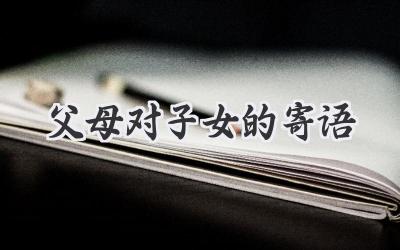 父母对子女的寄语